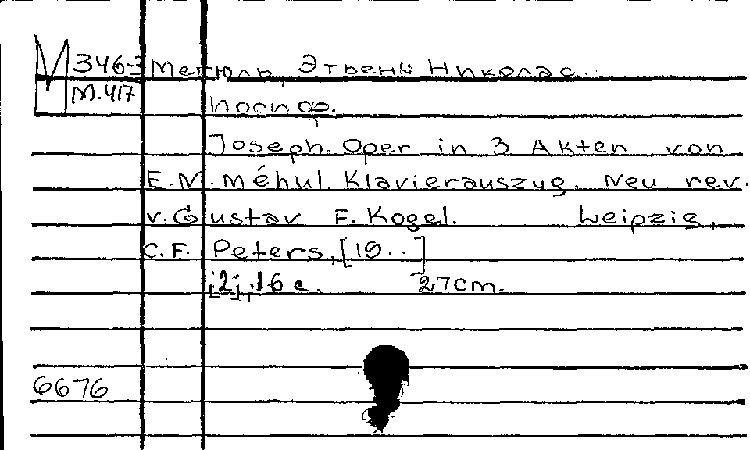 М 3463 Мегюль, Этьенн Николас..
М.417
Иосиф.
Joseph. Oper in 3 Akten von
E.N. Méhul. Klavierauszug. Neu rev.
v. Gustav F. Kogel. Leipzig,
C.F. Peters, [19..]
[2], 16 с. 27cm.
6676